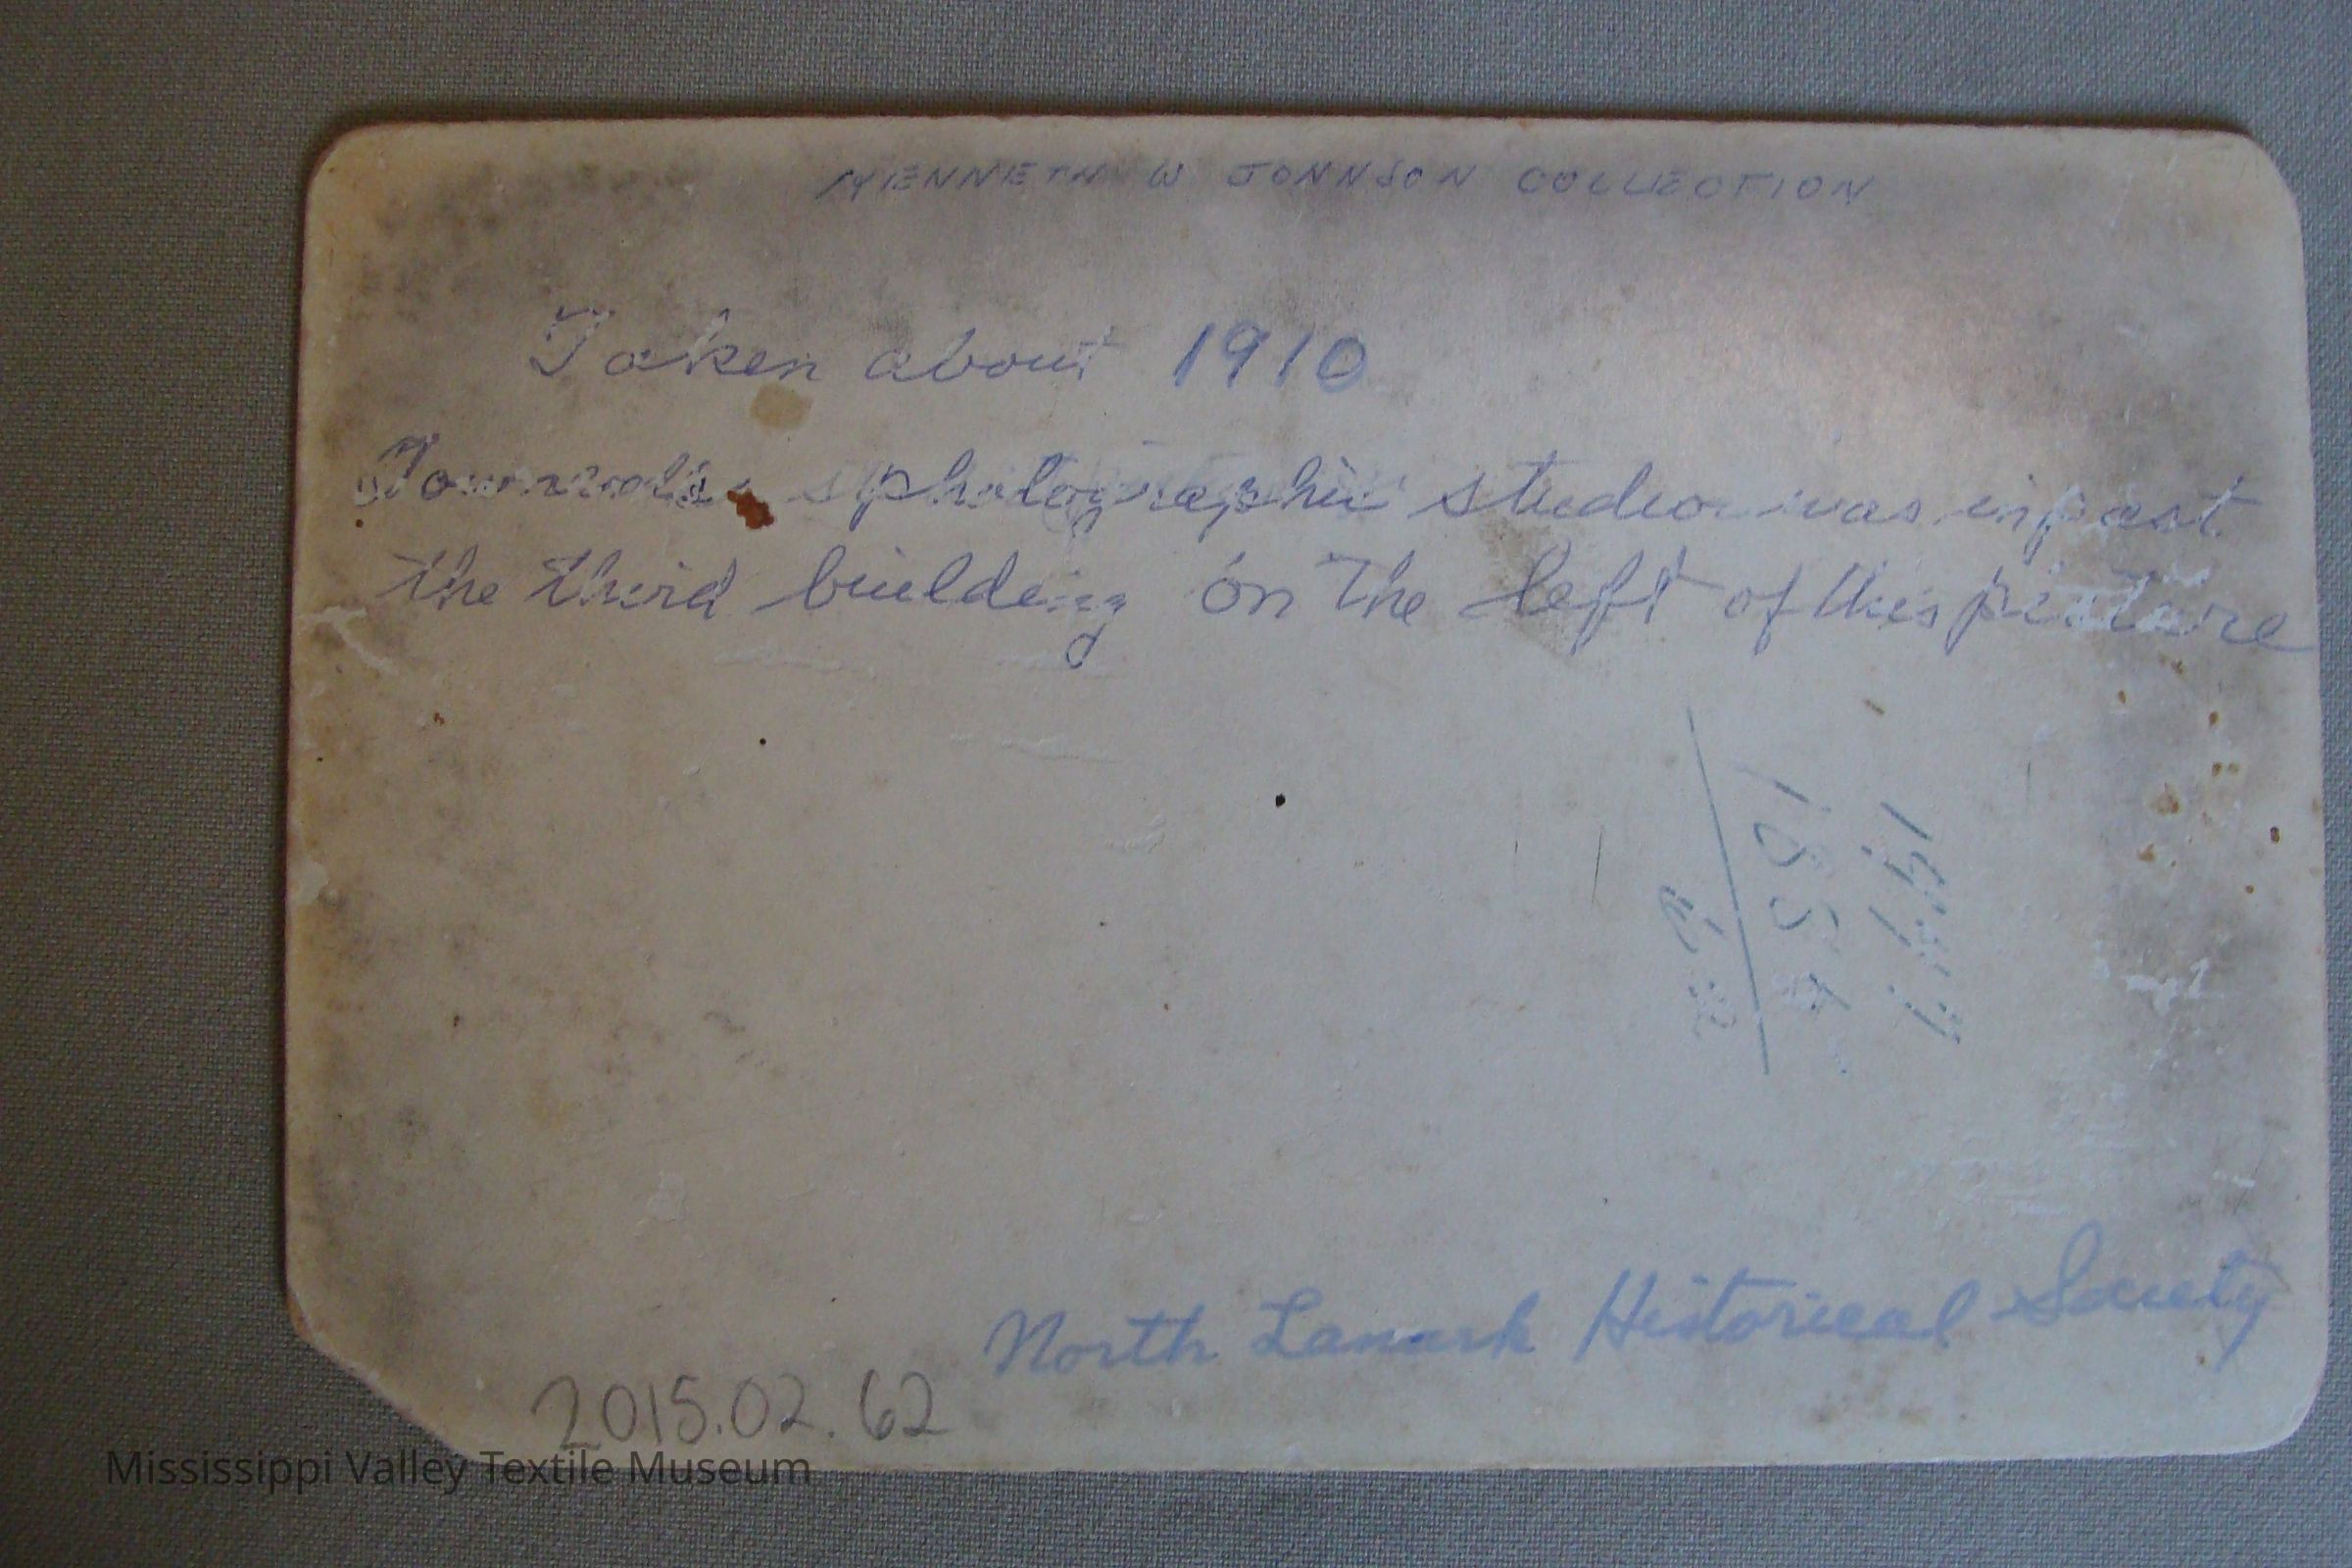 KENNETH W JOHNSON COLLECTION
Taken about 1910
photographic studio was in part
the third building on the left of this picture
North Lanark Historical Society
2015.02.62
Mississippi Valley Textile Museum